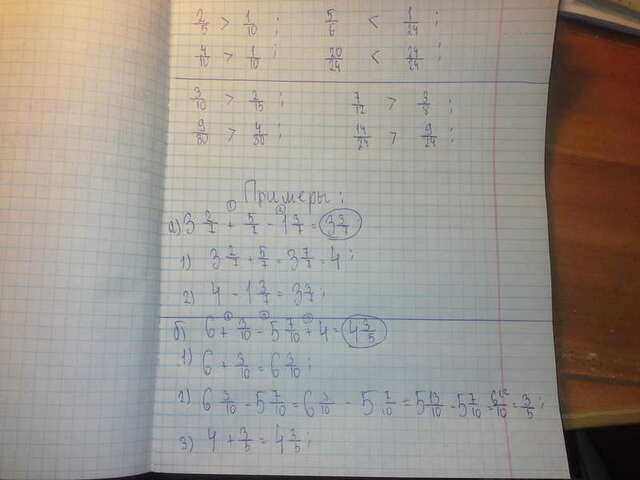 2/5 > 1/10 ; 5/6 < /24 ;
4/10 > 1/10 ; 20/24 < /24 ;
3/10 > 2/15 ; 7/12 > 3/8 ;
9/30 > 4/30 ; 14/24 > 9/24 ;
Примеры:
а) 3 2/7 + 5/7 - 1 =
1) 3 2/7 + 5/7 = 3 7/7 = 4;
2) 4 - 1 = 3
б) 6 + 3/10 - 5 7/10 + 4 = 4 3/5
1) 6 + 3/10 = 6 3/10;
2) 6 3/10 - 5 7/10 = 6 3/10 - 5 7/10 = 5 13/10 - 5 7/10 = 6/10 = 3/5;
3) 4 + 3/5 = 4 3/5;